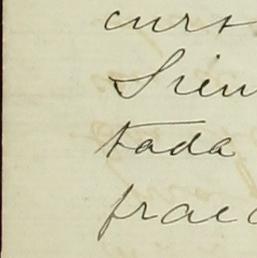 curs
Sien
tada
frac